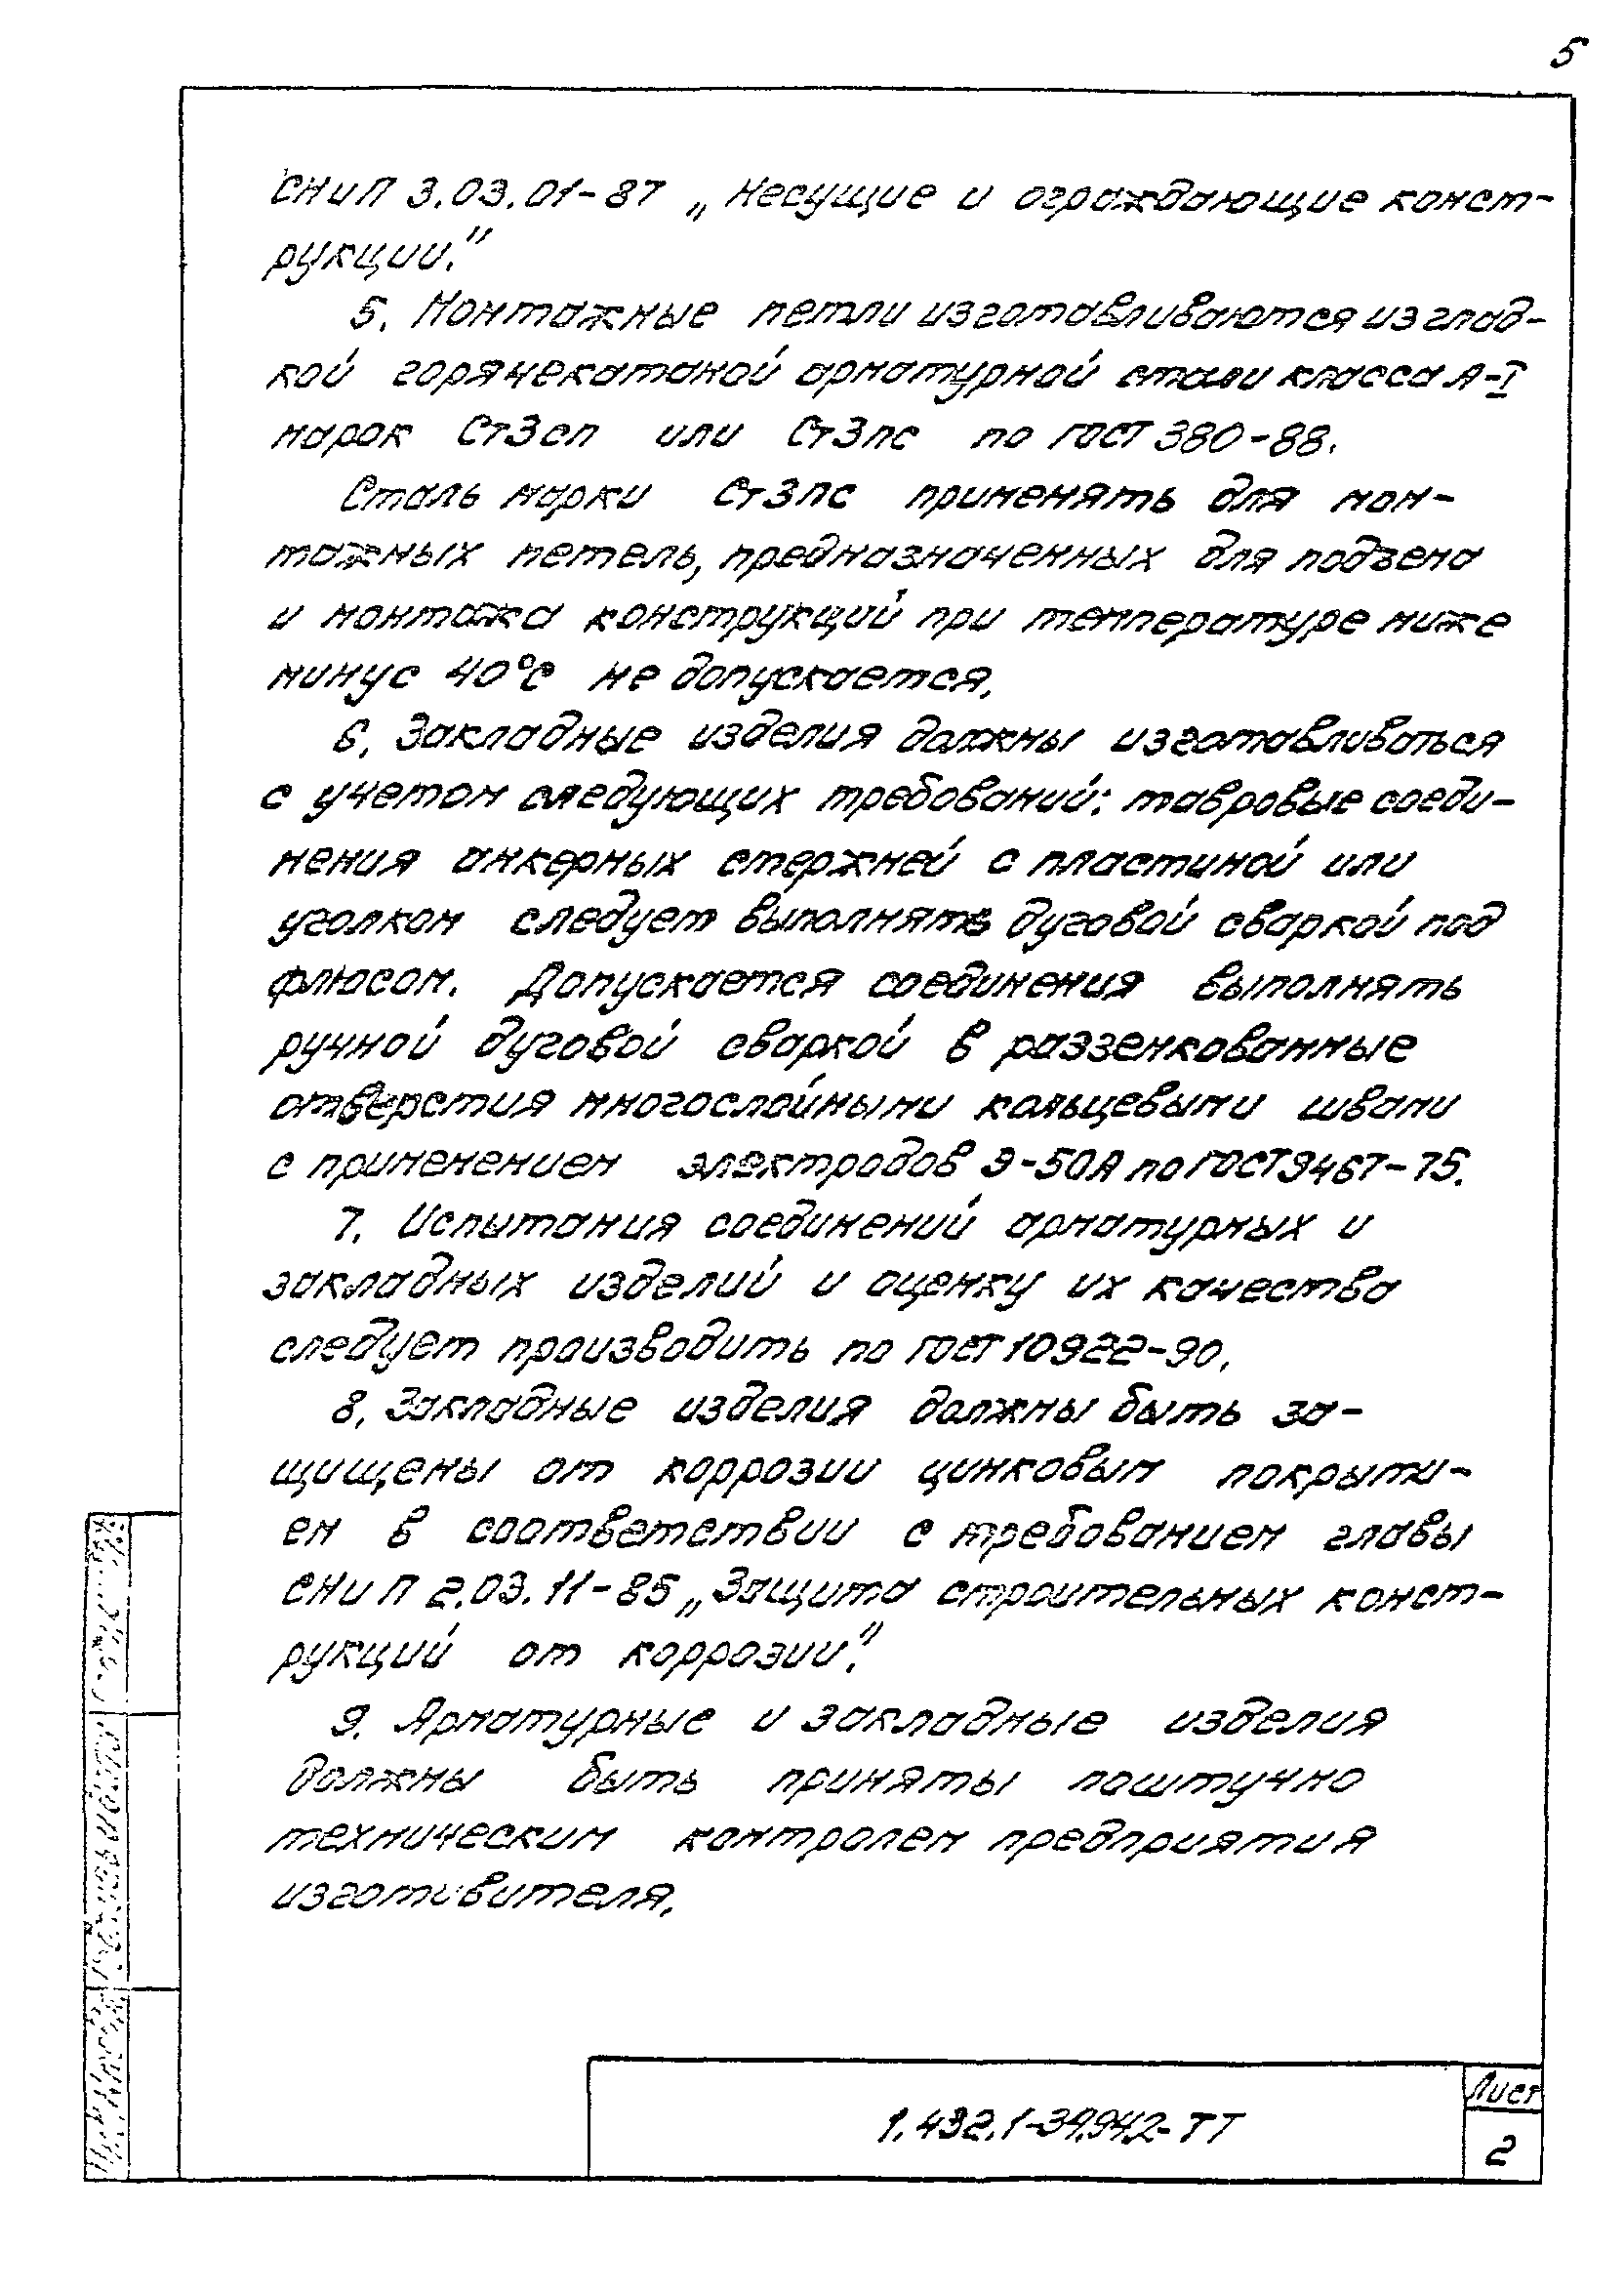 5
СНиП 3.03.01-87 „Несущие и ограждающие конст-
рукции."
5. Монтажные петли изготавливаются из глад-
кой горячекатаной арматурной стали класса А-I
марок Ст3сп или Ст3пс по ГОСТ 380-88.
Сталь марки Ст3пс применять для мон-
тажных петель, предназначенных для подъема
и монтажа конструкций при температуре ниже
минус 40°С не допускается.
6. Закладные изделия должны изготавливаться
с учетом следующих требований: тавровые соеди-
нения анкерных стержней с пластиной или
уголком следует выполнять дуговой сваркой под
флюсом. Допускается соединения выполнять
ручной дуговой сваркой в раззенкованные
отверстия многослойными кольцевыми швами
с применением электродов Э-50А по ГОСТ 9467-75.
7. Испытания соединений арматурных и
закладных изделий и оценку их качества
следует производить по ГОСТ 10922-90.
8. Закладные изделия должны быть за-
щищены от коррозии цинковым покрыти-
ем в соответствии с требованием главы
СНиП 2.03.11-85 „Защита строительных конст-
рукций от коррозии."
9. Арматурные и закладные изделия
должны быть приняты поштучно
техническим контролем предприятия
изготовителя.
1.432.1-39.94.2-ТТ
Лист
2